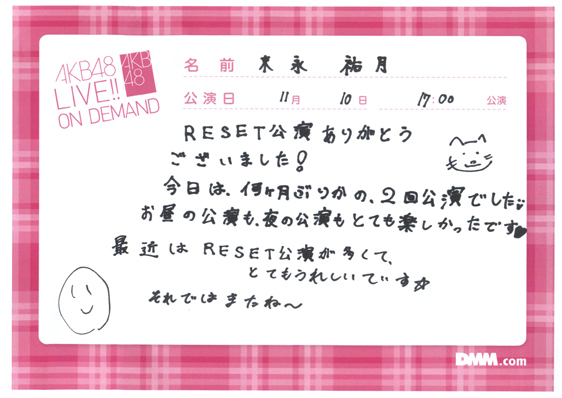 AKB48
LIVE!!
ON DEMAND
AKB
48
名前 末永 祐月
公演日 11月 10日 17:00 公演
RESET公演ありがとう
ございました!
今日は、何ヶ月ぶりかの、2回公演でした
お昼の公演も、夜の公演もとても楽しかったです♥
最近は RESET公演が多くて、
とてもうれしいでぃす☆
それではまたね〜
DMM.com